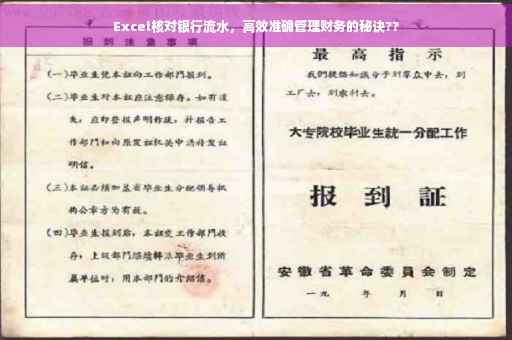 Excel核对银行流水，高效准确管理财务的秘诀??
报到注意事项
(一)毕业生凭本证向工作部门报到。
(二)毕业生对本证应注意保存。如有遗
失，应即登报声明作废，并报告工
作部门和向原发证机关申请补发证
明信。
(三)本证必须加盖省毕业生分配领导机
构公章方为有效。
(四)毕业生报到后，本证交工作部门收
存；上级部门
属单位时，用本部门的介绍信。
最高指示
我们提倡知识分子到群众中去，到
工厂去，到农村去。
大专院校毕业生统一分配工作
报到証
安徽省革命委員会制定
一九 年 月 日